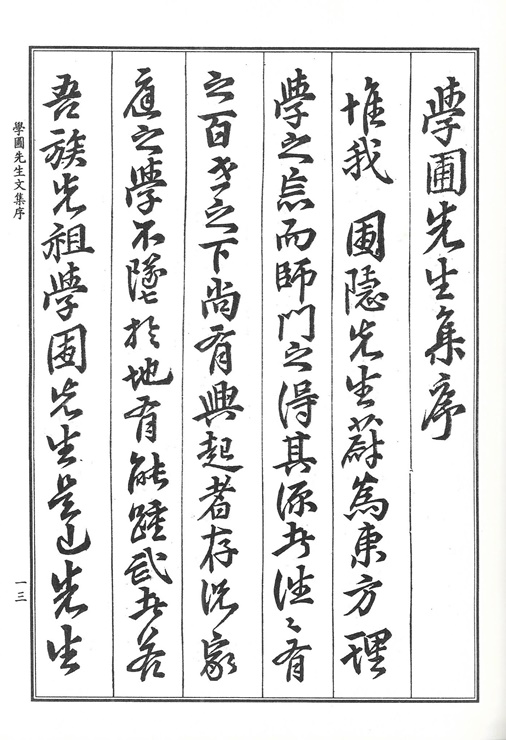 學圃先生集序
惟我 圃隱先生蔚為東方理
學之宗而師門之得其源者往〻有
之百世之下尚有興起者存況家
庭之學不墜於地有能踵武者若
吾族先祖學圃先生是已先生
學圃先生文集序
一三